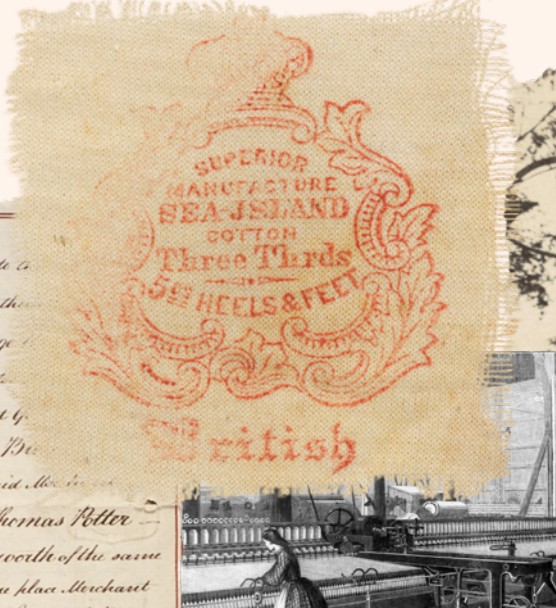 SUPERIOR
MANUFACTURE
SEA-JSLAND
COTTON
Three Thrds
HEELS & FEET
British
homas Potter
worth of the same
place Merchant